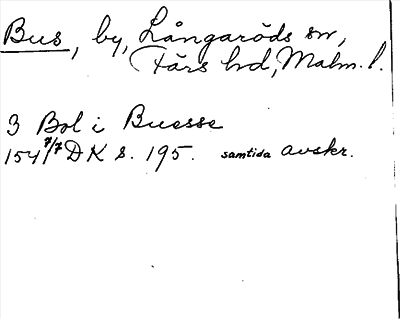 Bus, by, Långaröds sn,
Färs hd, Malm. l.
3 Bol i Buesse
154 7/7 DK s. 195. samtida avskr.